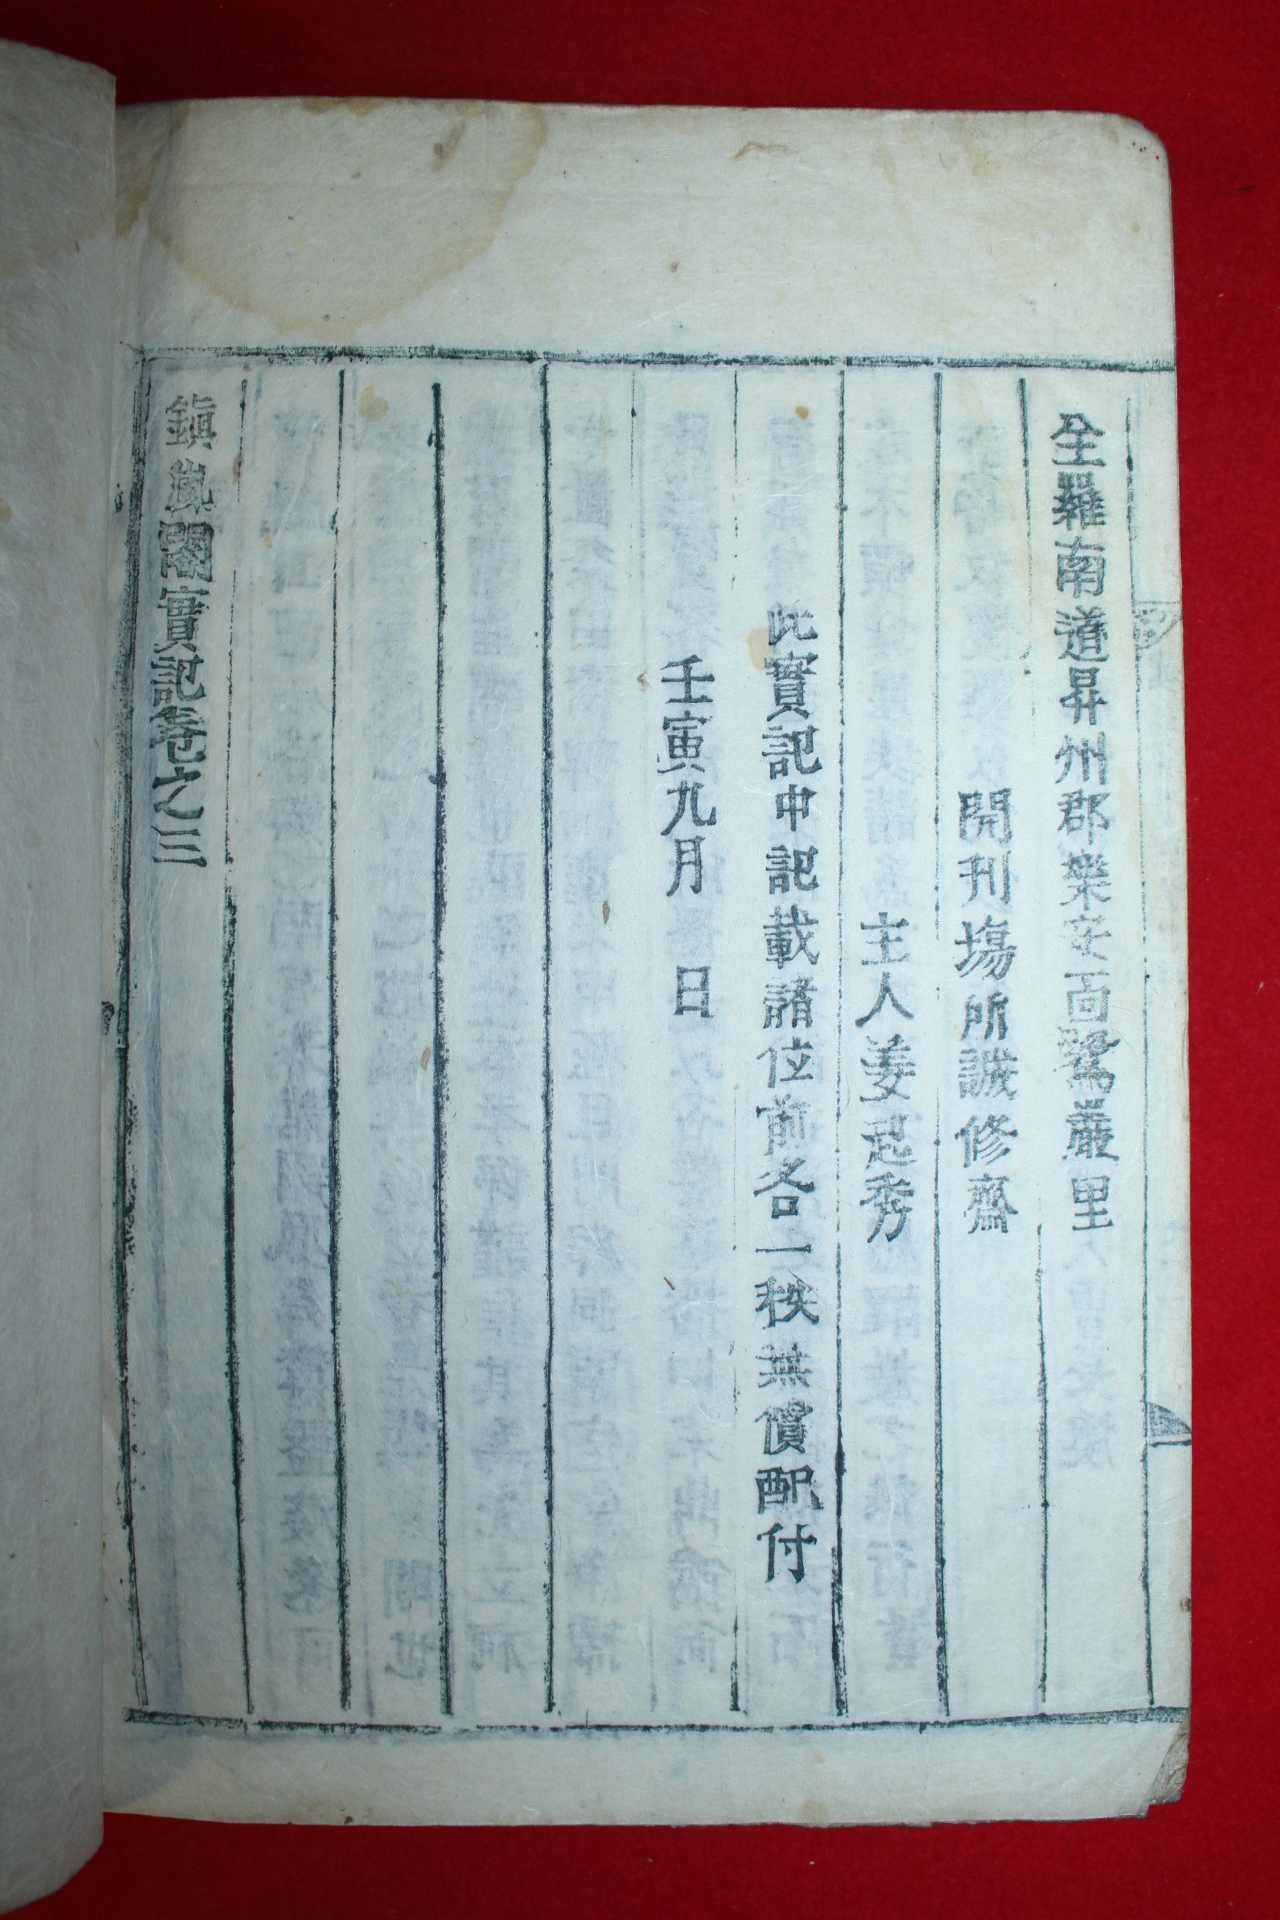 全羅南道昇州郡樂安面鷺巖里
開刊場所誠修齋
主人姜起秀
此實記中記載諸位前各一秩無償配付
壬寅九月 日
鎭嵐閣實記卷之三